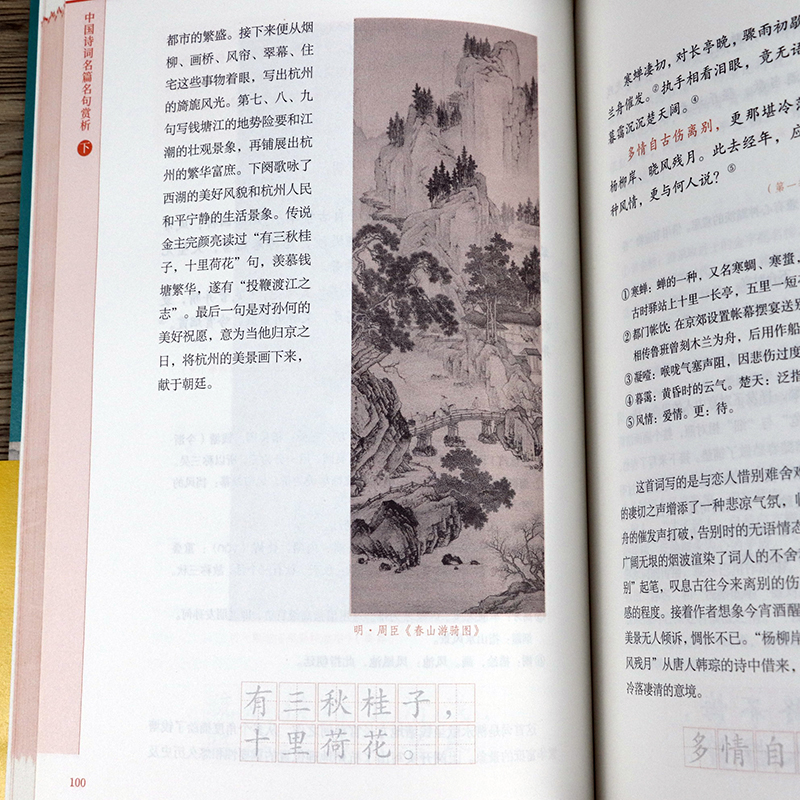 中国诗词名篇名句赏析 下
都市的繁盛。接下来便从烟
柳、画桥、风帘、翠幕、住
宅这些事物着眼，写出杭州
的旖旎风光。第七、八、九
句写钱塘江的地势险要和江
潮的壮观景象，再铺展出杭
州的繁华富庶。下阕歌咏了
西湖的美好风貌和杭州人民
和平宁静的生活景象。传说
金主完颜亮读过“有三秋桂
子，十里荷花”句，羡慕钱
塘繁华，遂有“投鞭渡江之
志”。最后一句是对孙何的
美好祝愿，意为当他归京之
日，将杭州的美景画下来，
献于朝廷。
明·周臣《春山游骑图》
有三秋桂子，
十里荷花。
100
寒蝉凄切，对长亭晚，骤雨初歇
兰舟催发。②执手相看泪眼，竟无语
暮霭沉沉楚天阔。④
多情自古伤离别，更那堪冷
杨柳岸、晓风残月。此去经年，应
种风情，更与何人说？⑤
（第一
①寒蝉：蝉的一种，又名寒蜩、寒螀，
古时驿站上十里一长亭，五里一短
②都门帐饮：在京郊设置帐幕摆宴送别
相传鲁班曾刻木兰为舟，后用作船
③凝噎：喉咙气塞声阻，因悲伤过度
④暮霭：黄昏时的云气。楚天：泛指
⑤风情：爱情。更：待。
这首词写的是与恋人惜别难舍难
的凄切之声增添了一种悲凉气氛，临
舟的催发声打破，告别时的无语情态
广阔无垠的烟波渲染了词人的不舍
别”起笔，叹息古往今来离别的伤
感的程度。接着作者想象今宵酒醒
美景无人倾诉，惆怅不已。“杨柳岸
风残月”从唐人韩琮的诗中借来，
冷落凄清的意境。
多情自